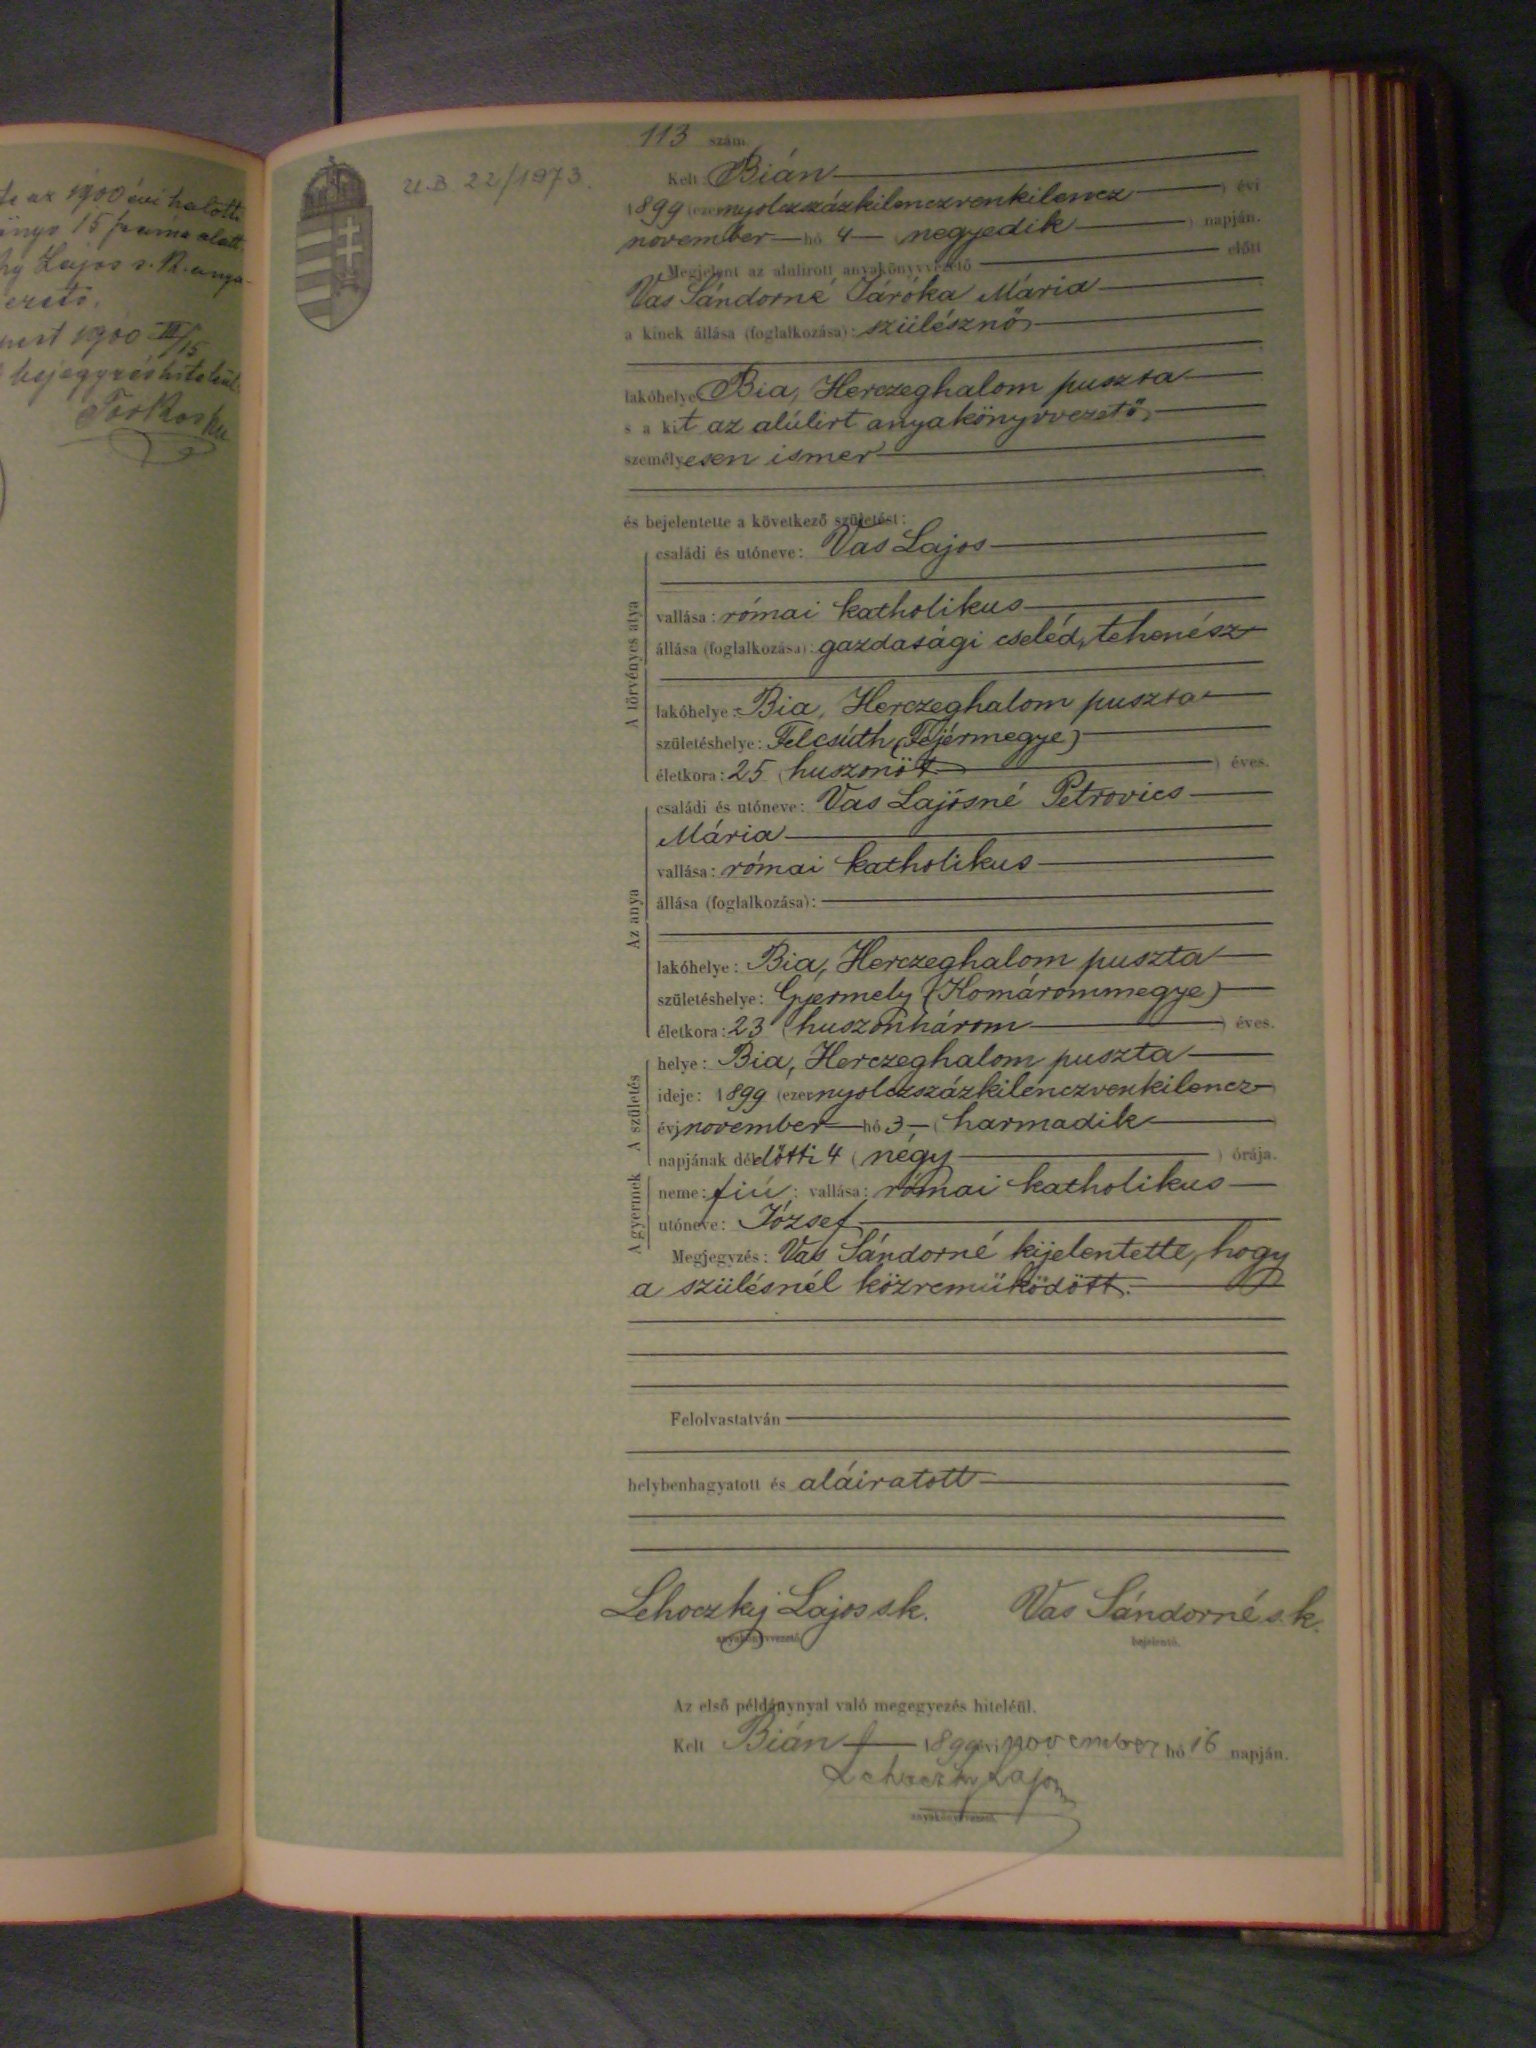 te az 1900 évi halotti
15 száma alatt
Lajos s. k. anya-
vezető.
pest 1900 III/15
bejegyzés hiteléül.
U.B. 22/1973.
113 szám.
Kelt Bián
1899 (ezernyolczszázkilenczvenkilencz ) évi
november hó 4 (negyedik ) napján.
Megjelent az alulirott anyakönyvvezető előtt
Vas Sándorné Járóka Mária
a kinek állása (foglalkozása): szülésznő
lakóhelye Bia, Herczeghalom puszta
s a kit az alúlirt anyakönyvvezető
személyesen ismer
és bejelentette a következő születést:
A törvényes atya
családi és utóneve: Vas Lajos
vallása: római katholikus
állása (foglalkozása): gazdasági cseléd, tehenész
lakóhelye: Bia, Herczeghalom puszta
születéshelye: Felcsúth (Fejérmegye)
életkora: 25 (huszonöt ) éves.
Az anya
családi és utóneve: Vas Lajosné Petrovics
Mária
vallása: római katholikus
állása (foglalkozása):
lakóhelye: Bia, Herczeghalom puszta
születéshelye: Gyermely (Komárommegye)
életkora: 23 (huszonhárom ) éves.
A születés
helye: Bia, Herczeghalom puszta
ideje: 1899 (ezernyolczszázkilenczvenkilencz)
évi november hó 3 (harmadik )
napjának délelőtti 4 (négy ) órája.
A gyermek
neme: fiú; vallása: római katholikus
utóneve: József
Megjegyzés: Vas Sándorné kijelentette, hogy
a szülésnél közreműködött.
Felolvastatván
helybenhagyatott és aláiratott
Lehoczky Lajos s.k. Vas Sándorné s.k.
anyakönyvvezető bejelentő.
Az első példánynyal való megegyezés hiteléül.
Kelt Bián 1899 évi november hó 16 napján.
Lehoczky Lajos
anyakönyvvezető.